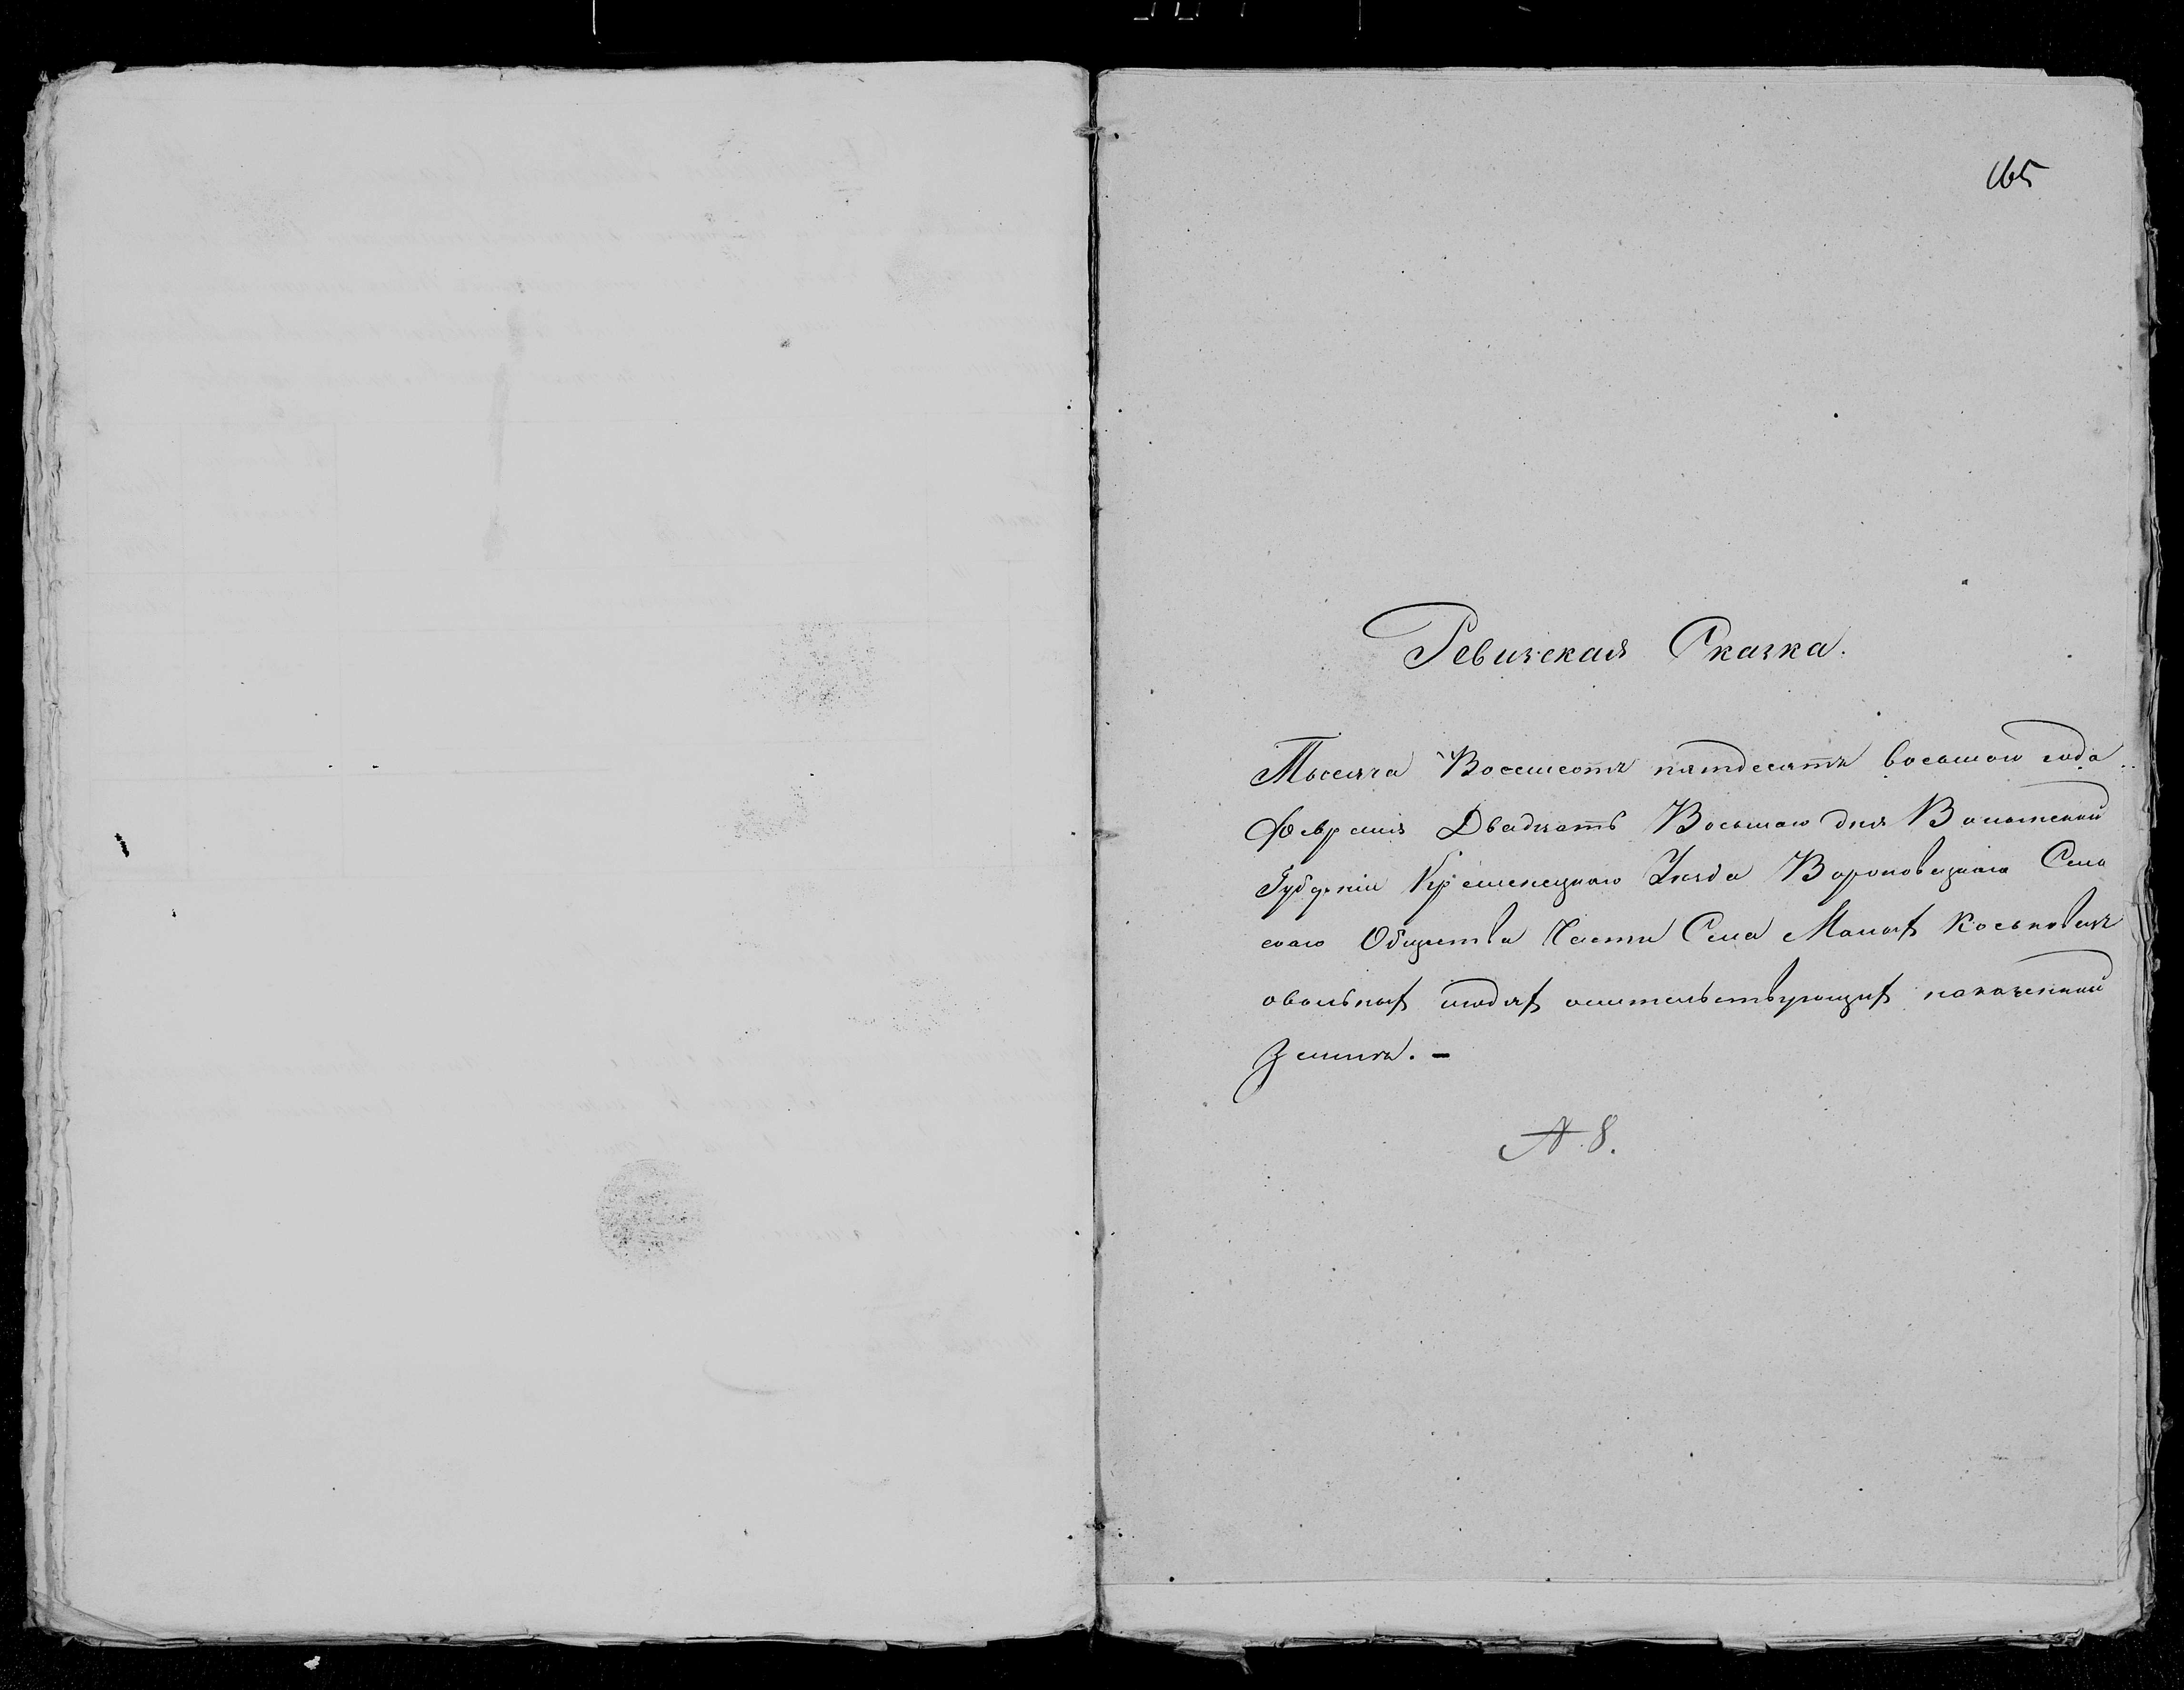 165
Ревизская Сказка.
Тысяча Восемсотъ пятдесятъ восьмаго года
Февраля Двадцать Восьмаго дня Волынской
Губерніи Кременецкаго Уезда Вороновецкаго Сель
скаго Общества Части Села Малыхъ Косковецъ
овольныхъ людяхъ жительствующихъ на казенной
Земли. –
№ 8.